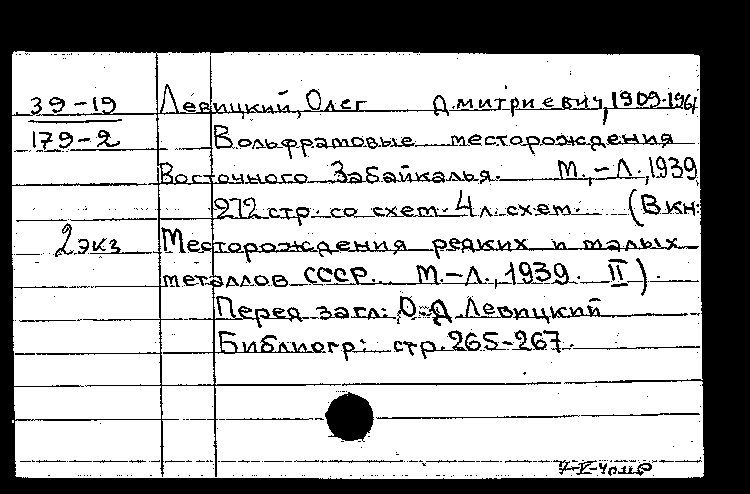 39-19 Левицкий, Олег Дмитриевич, 1909-1961
179-2 Вольфрамовые месторождения
Восточного Забайкалья. М.,-Л., 1939
272 стр. со схем. 4 л. схем. (В кн:
2 экз Месторождения редких и малых
металлов СССР. М.-Л., 1939. II).
Перед загл: О.Д. Левицкий
Библиогр: стр. 265-267.